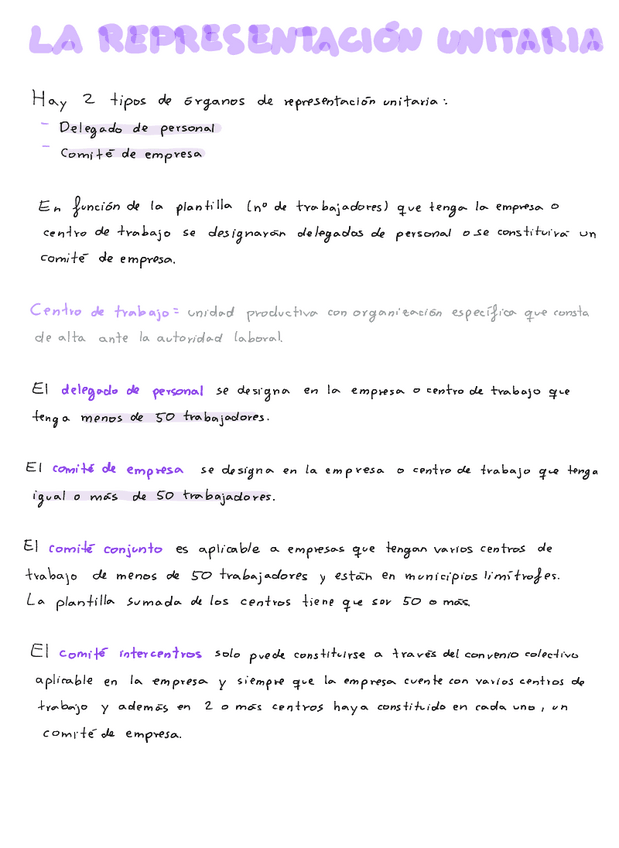 LA REPRESENTACIÓN UNITARIA
Hay 2 tipos de órganos de representación unitaria:
- Delegado de personal
- Comité de empresa
En función de la plantilla (nº de trabajadores) que tenga la empresa o
centro de trabajo se designarán delegados de personal o se constituirá un
comité de empresa.
Centro de trabajo = unidad productiva con organización específica que consta
de alta ante la autoridad laboral.
El delegado de personal se designa en la empresa o centro de trabajo que
tenga menos de 50 trabajadores.
El comité de empresa se designa en la empresa o centro de trabajo que tenga
igual o más de 50 trabajadores.
El comité conjunto es aplicable a empresas que tengan varios centros de
trabajo de menos de 50 trabajadores y están en municipios limítrofes.
La plantilla sumada de los centros tiene que ser 50 o más.
El comité intercentros solo puede constituirse a través del convenio colectivo
aplicable en la empresa y siempre que la empresa cuente con varios centros de
trabajo y además en 2 o más centros haya constituido en cada uno, un
comité de empresa.